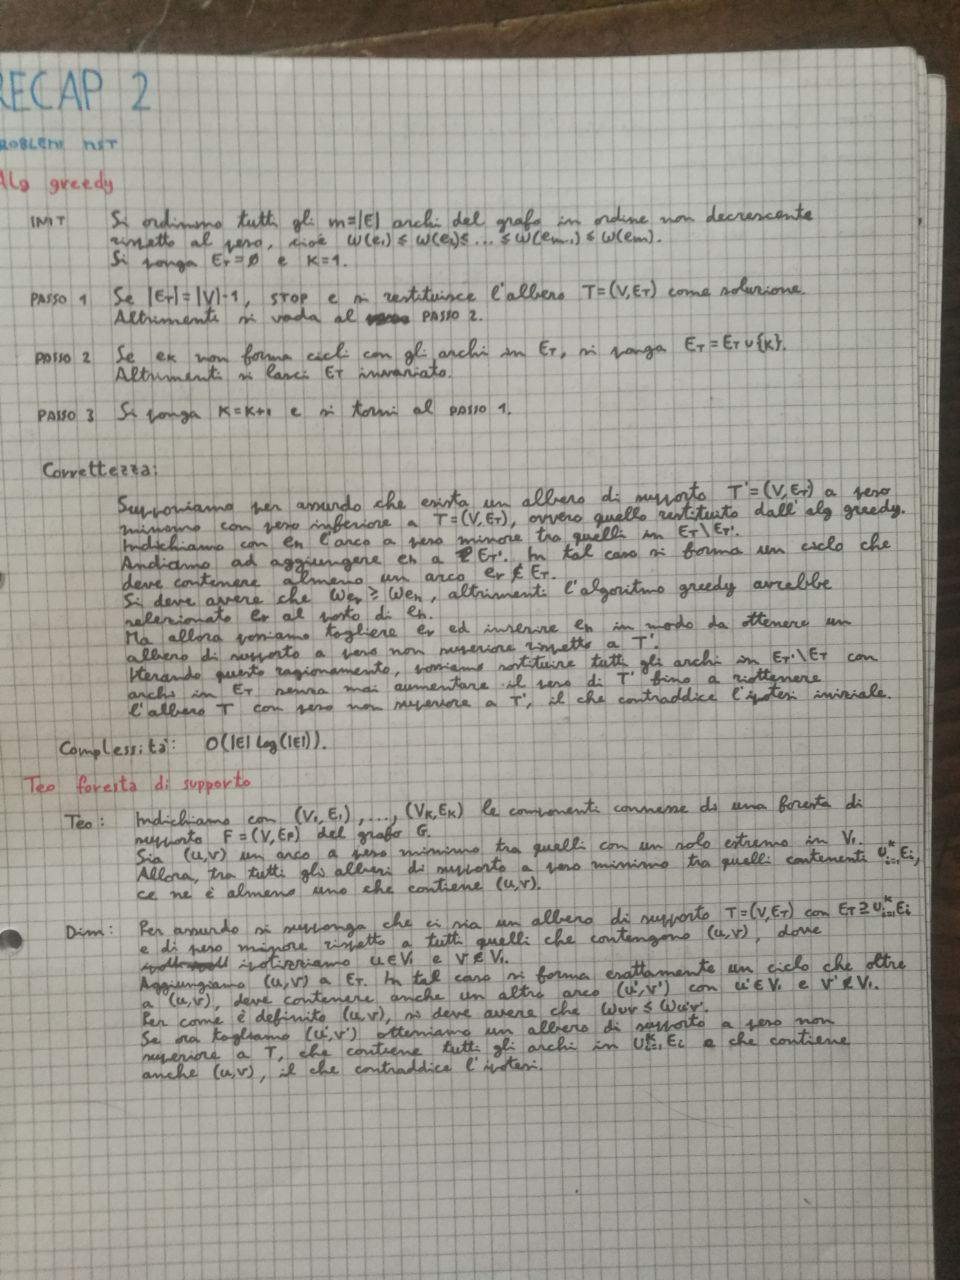 RECAP 2
PROBLEMI MST
Alg greedy
INIT Si ordinano tutti gli m=|E| archi del grafo in ordine non decrescente
rispetto al peso, cioè w(e₁) ≤ w(e₂) ≤ ... ≤ w(eₘ₋₁) ≤ w(eₘ).
Si ponga E_T = ∅ e K=1.
PASSO 1 Se |E_T|=|V|-1, STOP e si restituisce l'albero T=(V,E_T) come soluzione.
Altrimenti si vada al PASSO 2.
PASSO 2 Se eK non forma cicli con gli archi in E_T, si ponga E_T = E_T ∪ {K}.
Altrimenti si lasci E_T invariato.
PASSO 3 Si ponga K=K+1 e si torni al PASSO 1.
Correttezza:
Supponiamo per assurdo che esista un albero di supporto T'=(V,E_T') a peso
minimo con peso inferiore a T=(V,E_T), ovvero quello restituito dall'alg greedy.
Indichiamo con eₕ l'arco a peso minore tra quelli in E_T\E_T'.
Andiamo ad aggiungere eₕ a E_T'. In tal caso si forma un ciclo che
deve contenere almeno un arco eᵣ ∉ E_T.
Si deve avere che w_eᵣ ≥ w_eₕ, altrimenti l'algoritmo greedy avrebbe
selezionato eᵣ al posto di eₕ.
Ma allora possiamo togliere eᵣ ed inserire eₕ in modo da ottenere un
albero di supporto a peso non superiore rispetto a T'.
Iterando questo ragionamento, possiamo sostituire tutti gli archi in E_T'\E_T con
archi in E_T senza mai aumentare il peso di T' fino a riottenere
l'albero T con peso non superiore a T', il che contraddice l'ipotesi iniziale.
Complessità: O(|E| log(|E|)).
Teo foresta di supporto
Teo: Indichiamo con (V₁,E₁),...,(V_K,E_K) le componenti connesse di una foresta di
supporto F=(V,E_F) del grafo G.
Sia (u,v) un arco a peso minimo tra quelli con un solo estremo in V₁.
Allora, tra tutti gli alberi di supporto a peso minimo tra quelli contenenti ∪ᵢ₌₁ᴷ Eᵢ,
ce ne è almeno uno che contiene (u,v).
Dim: Per assurdo si supponga che ci sia un albero di supporto T=(V,E_T) con E_T ⊇ ∪ᵢ₌₁ᴷ Eᵢ
e di peso minore rispetto a tutti quelli che contengono (u,v), dove
ipotizziamo u∈V₁ e v∉V₁.
Aggiungiamo (u,v) a E_T. In tal caso si forma esattamente un ciclo che oltre
a (u,v), deve contenere anche un altro arco (u',v') con u'∈V₁ e v'∉V₁.
Per come è definito (u,v), si deve avere che w_uv ≤ w_u'v'.
Se ora togliamo (u',v') otteniamo un albero di supporto a peso non
superiore a T, che contiene tutti gli archi in ∪ᵢ₌₁ᴷ Eᵢ e che contiene
anche (u,v), il che contraddice l'ipotesi.